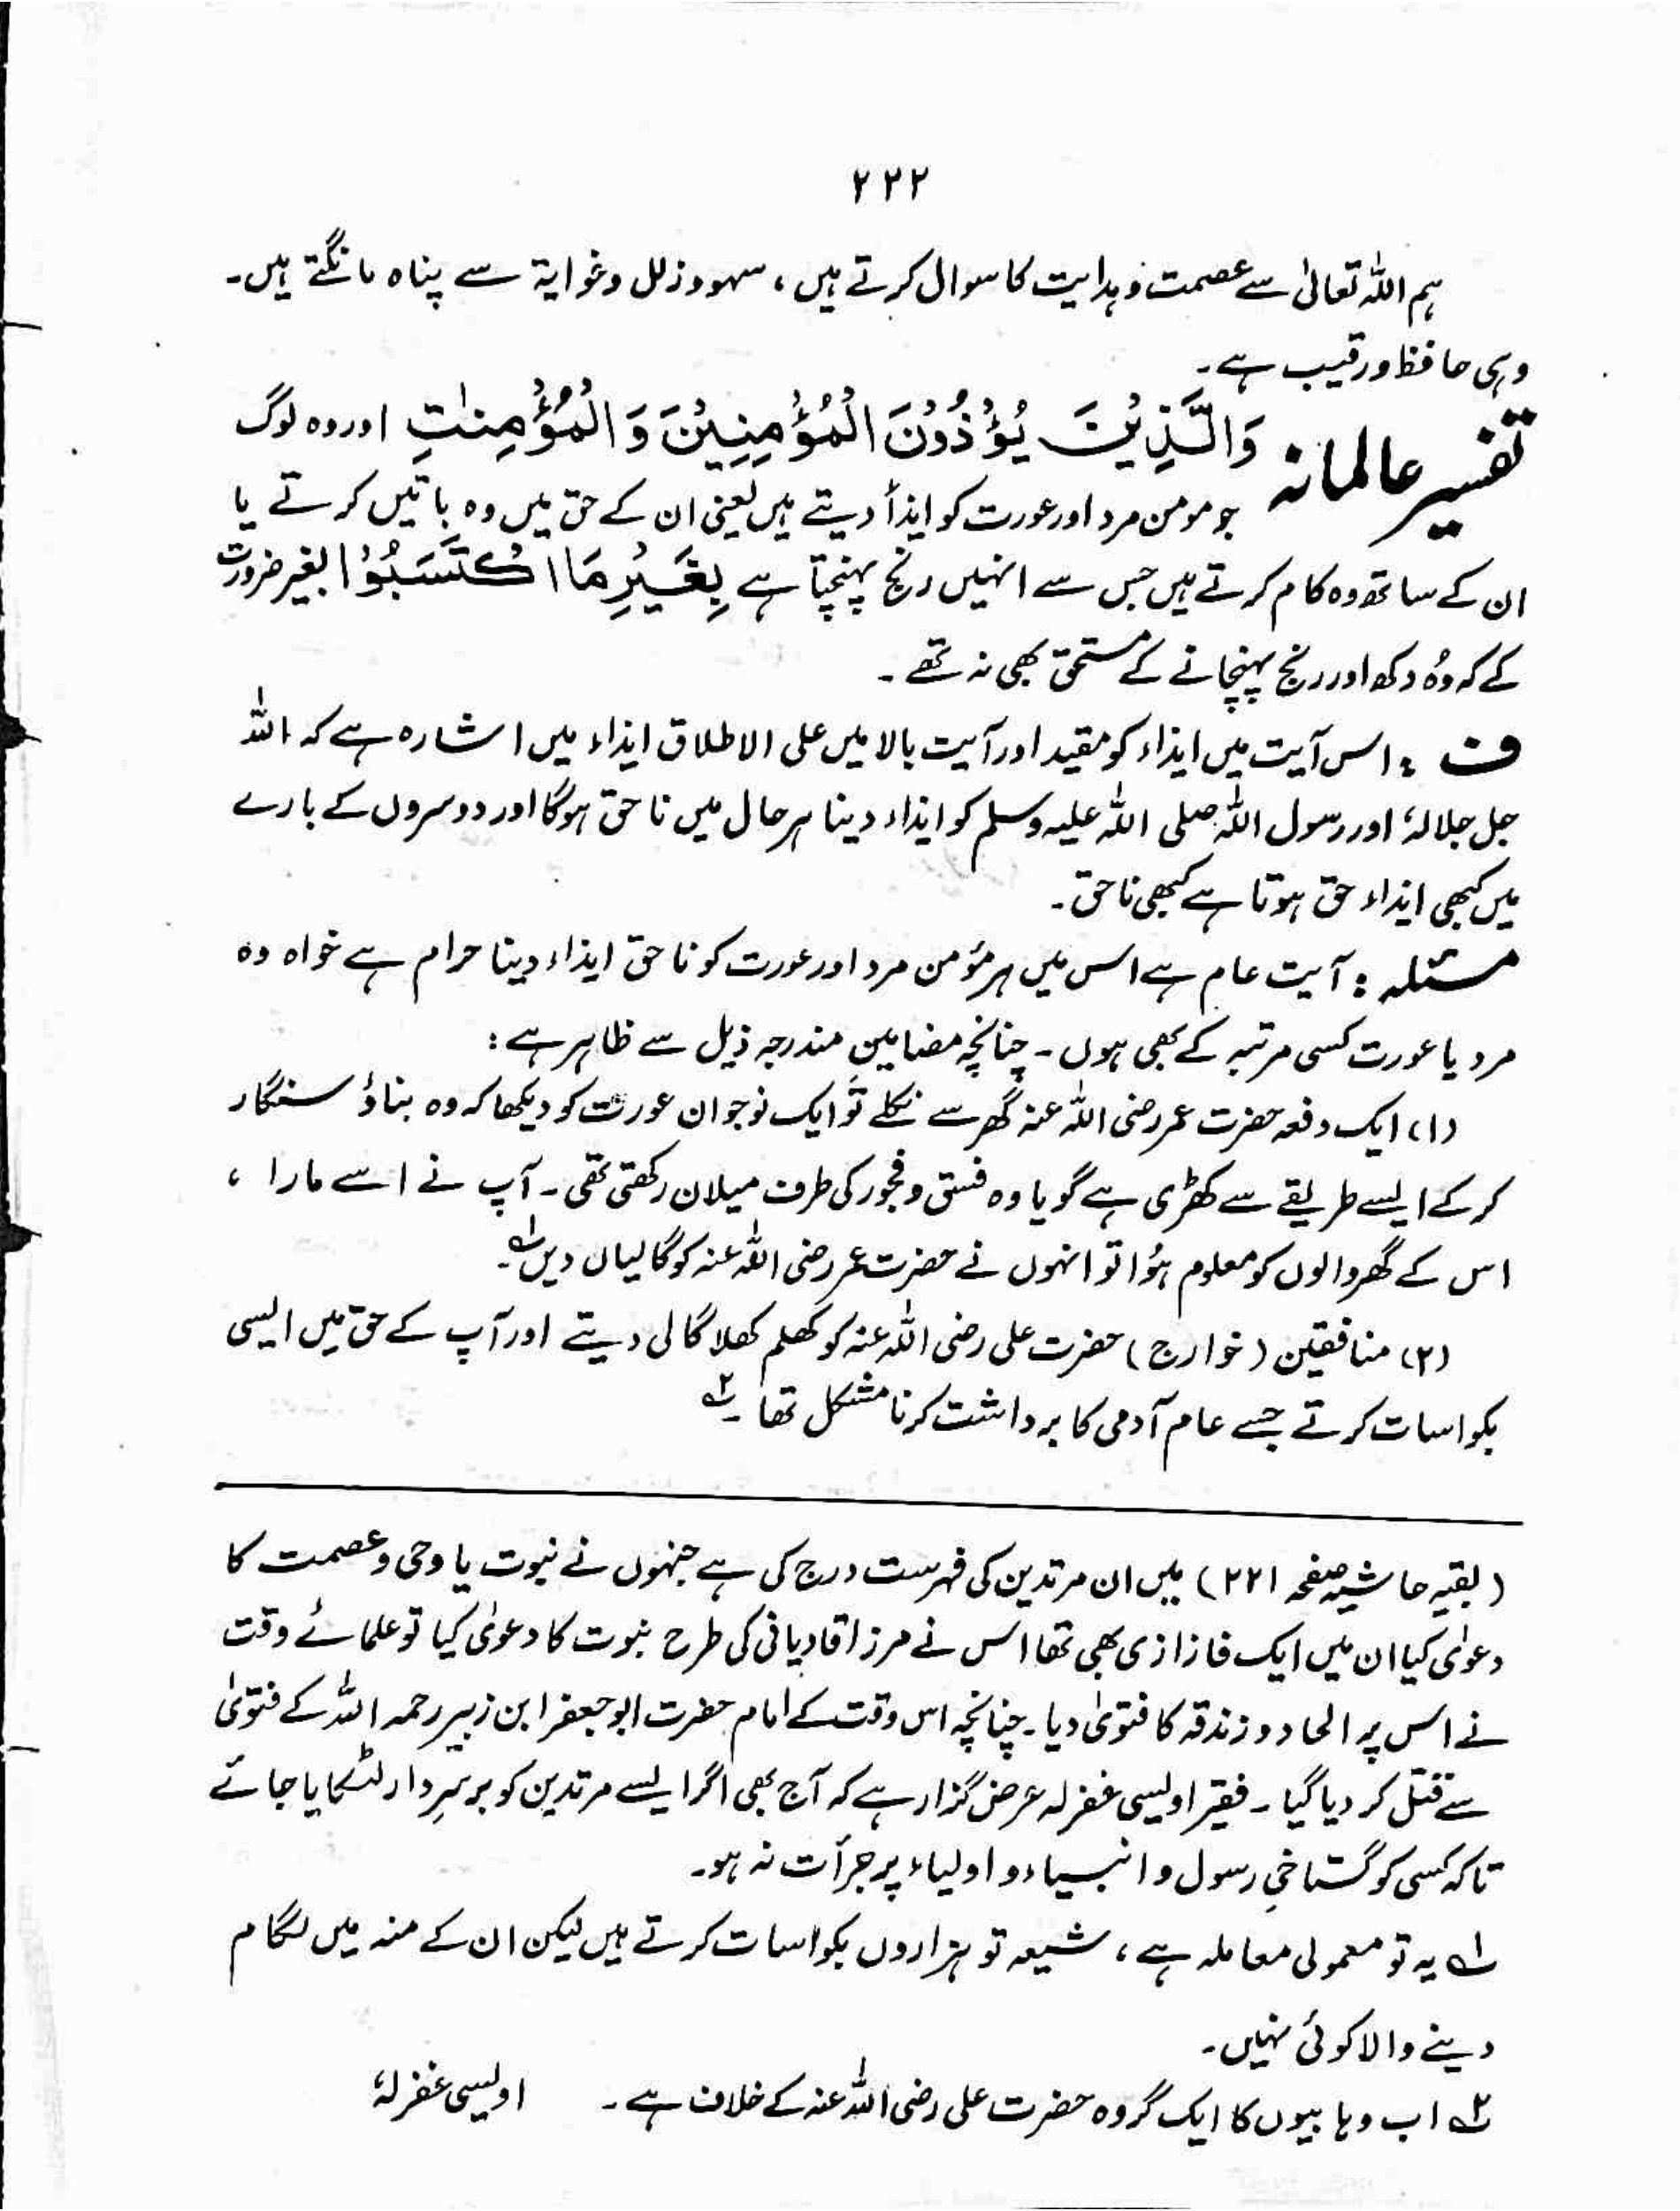 ۲۲۲
ہم اللہ تعالیٰ سے عصمت و ہدایت کا سوال کرتے ہیں ، سہو و زلل و غوایۃ سے پناہ مانگتے ہیں۔
وہی حافظ و رقیب ہے۔
تفسیر عالمانہ وَالَّذِیْنَ یُؤْذُوْنَ الْمُؤْمِنِیْنَ وَالْمُؤْمِنٰتِ اور وہ لوگ
جو مومن مرد اور عورت کو ایذأ دیتے ہیں یعنی ان کے حق میں وہ باتیں کرتے یا
ان کے ساتھ وہ کام کرتے ہیں جس سے انہیں رنج پہنچتا ہے بِغَیْرِ مَا اکْتَسَبُوْا بغیر ضرورت
کے کہ وُہ دکھ اور رنج پہنچانے کے مستحق بھی نہ تھے ۔
ف : اس آیت میں ایذاء کو مقید اور آیت بالا میں علی الاطلاق ایذاء میں اشارہ ہے کہ اللہ
جل جلالہٗ اور رسول اللہ صلی اللہ علیہ وسلم کو ایذاء دینا ہر حال میں ناحق ہوگا اور دوسروں کے بارے
میں کبھی ایذاء حق ہوتا ہے کبھی ناحق ۔
مسئلہ : آیت عام ہے اس میں ہر مؤمن مرد اور عورت کو ناحق ایذاء دینا حرام ہے خواہ وہ
مرد یا عورت کسی مرتبہ کے بھی ہوں ۔ چنانچہ مضامینِ مندرجہ ذیل سے ظاہر ہے :
(۱) ایک دفعہ حضرت عمر رضی اللہ عنہ گھر سے نکلے تو ایک نوجوان عورت کو دیکھا کہ وہ بناؤ سنگار
کرکے ایسے طریقے سے کھڑی ہے گویا وہ فسق و فجور کی طرف میلان رکھتی تھی ۔ آپ نے اسے مارا ،
اس کے گھر والوں کو معلوم ہُوا تو انہوں نے حضرت عمر رضی اللہ عنہ کو گالیاں دیں ؂۱۔
(۲) منافقین (خوارج) حضرت علی رضی اللہ عنہ کو کھلم کھلا گالی دیتے اور آپ کے حق میں ایسی
بکواسات کرتے جسے عام آدمی کا برداشت کرنا مشکل تھا ۔؂۲
(بقیہ حاشیہ صفحہ ۲۲۱) میں ان مرتدین کی فہرست درج کی ہے جنہوں نے نبوت یا وحی و عصمت کا
دعوٰی کیا ان میں ایک فازازی بھی تھا اس نے مرزا قادیانی کی طرح نبوت کا دعوٰی کیا تو علمائے وقت
نے اس پر الحاد و زندقہ کا فتوٰی دیا ۔ چنانچہ اس وقت کے امام حضرت ابوجعفر ابن زبیر رحمہ اللہ کے فتوٰی
سے قتل کر دیا گیا ۔ فقیر اویسی غفرلہ عرض گزار ہے کہ آج بھی اگر ایسے مرتدین کو برسرِدار لٹکایا جائے
تاکہ کسی کو گستاخیِ رسول و انبیاء و اولیاء پر جرأت نہ ہو۔
؂۱ یہ تو معمولی معاملہ ہے ، شیعہ تو ہزاروں بکواسات کرتے ہیں لیکن ان کے منہ میں لگام
دینے والا کوئی نہیں ۔
؂۲ اب وہابیوں کا ایک گروہ حضرت علی رضی اللہ عنہ کے خلاف ہے ۔ اویسی غفرلہٗ